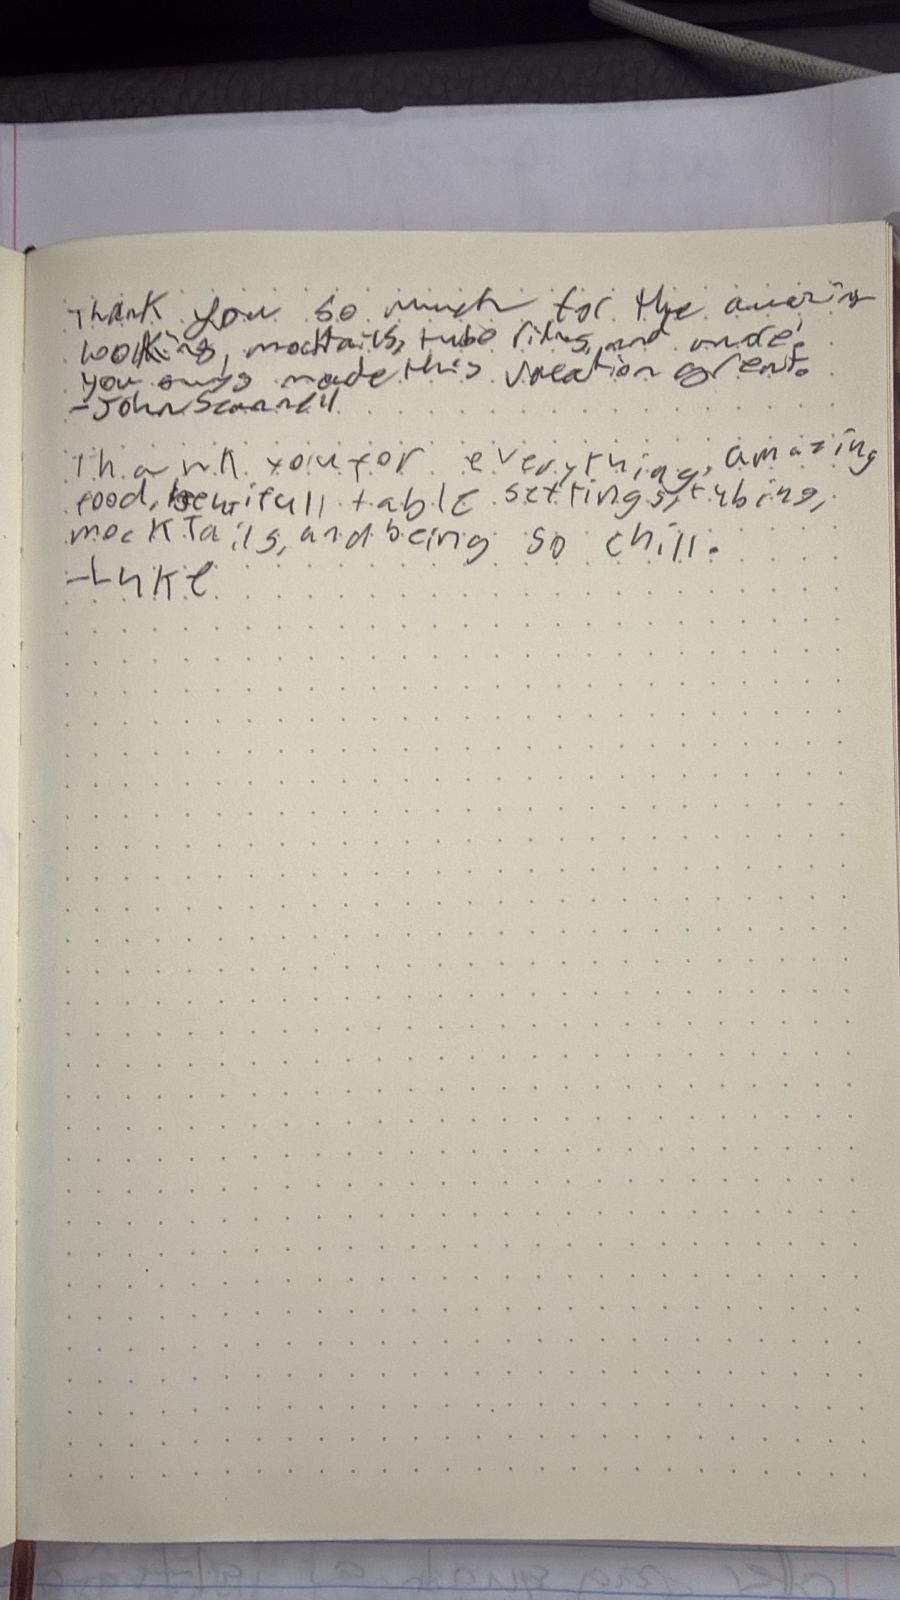 Thank you so much for the amazing
mocktails, tube rides, and
you guys made this vacation great.
-John
Thank you for everything, amazing
food, beutifull table settings, tubing,
mocktails, and being so chill.
-Luke